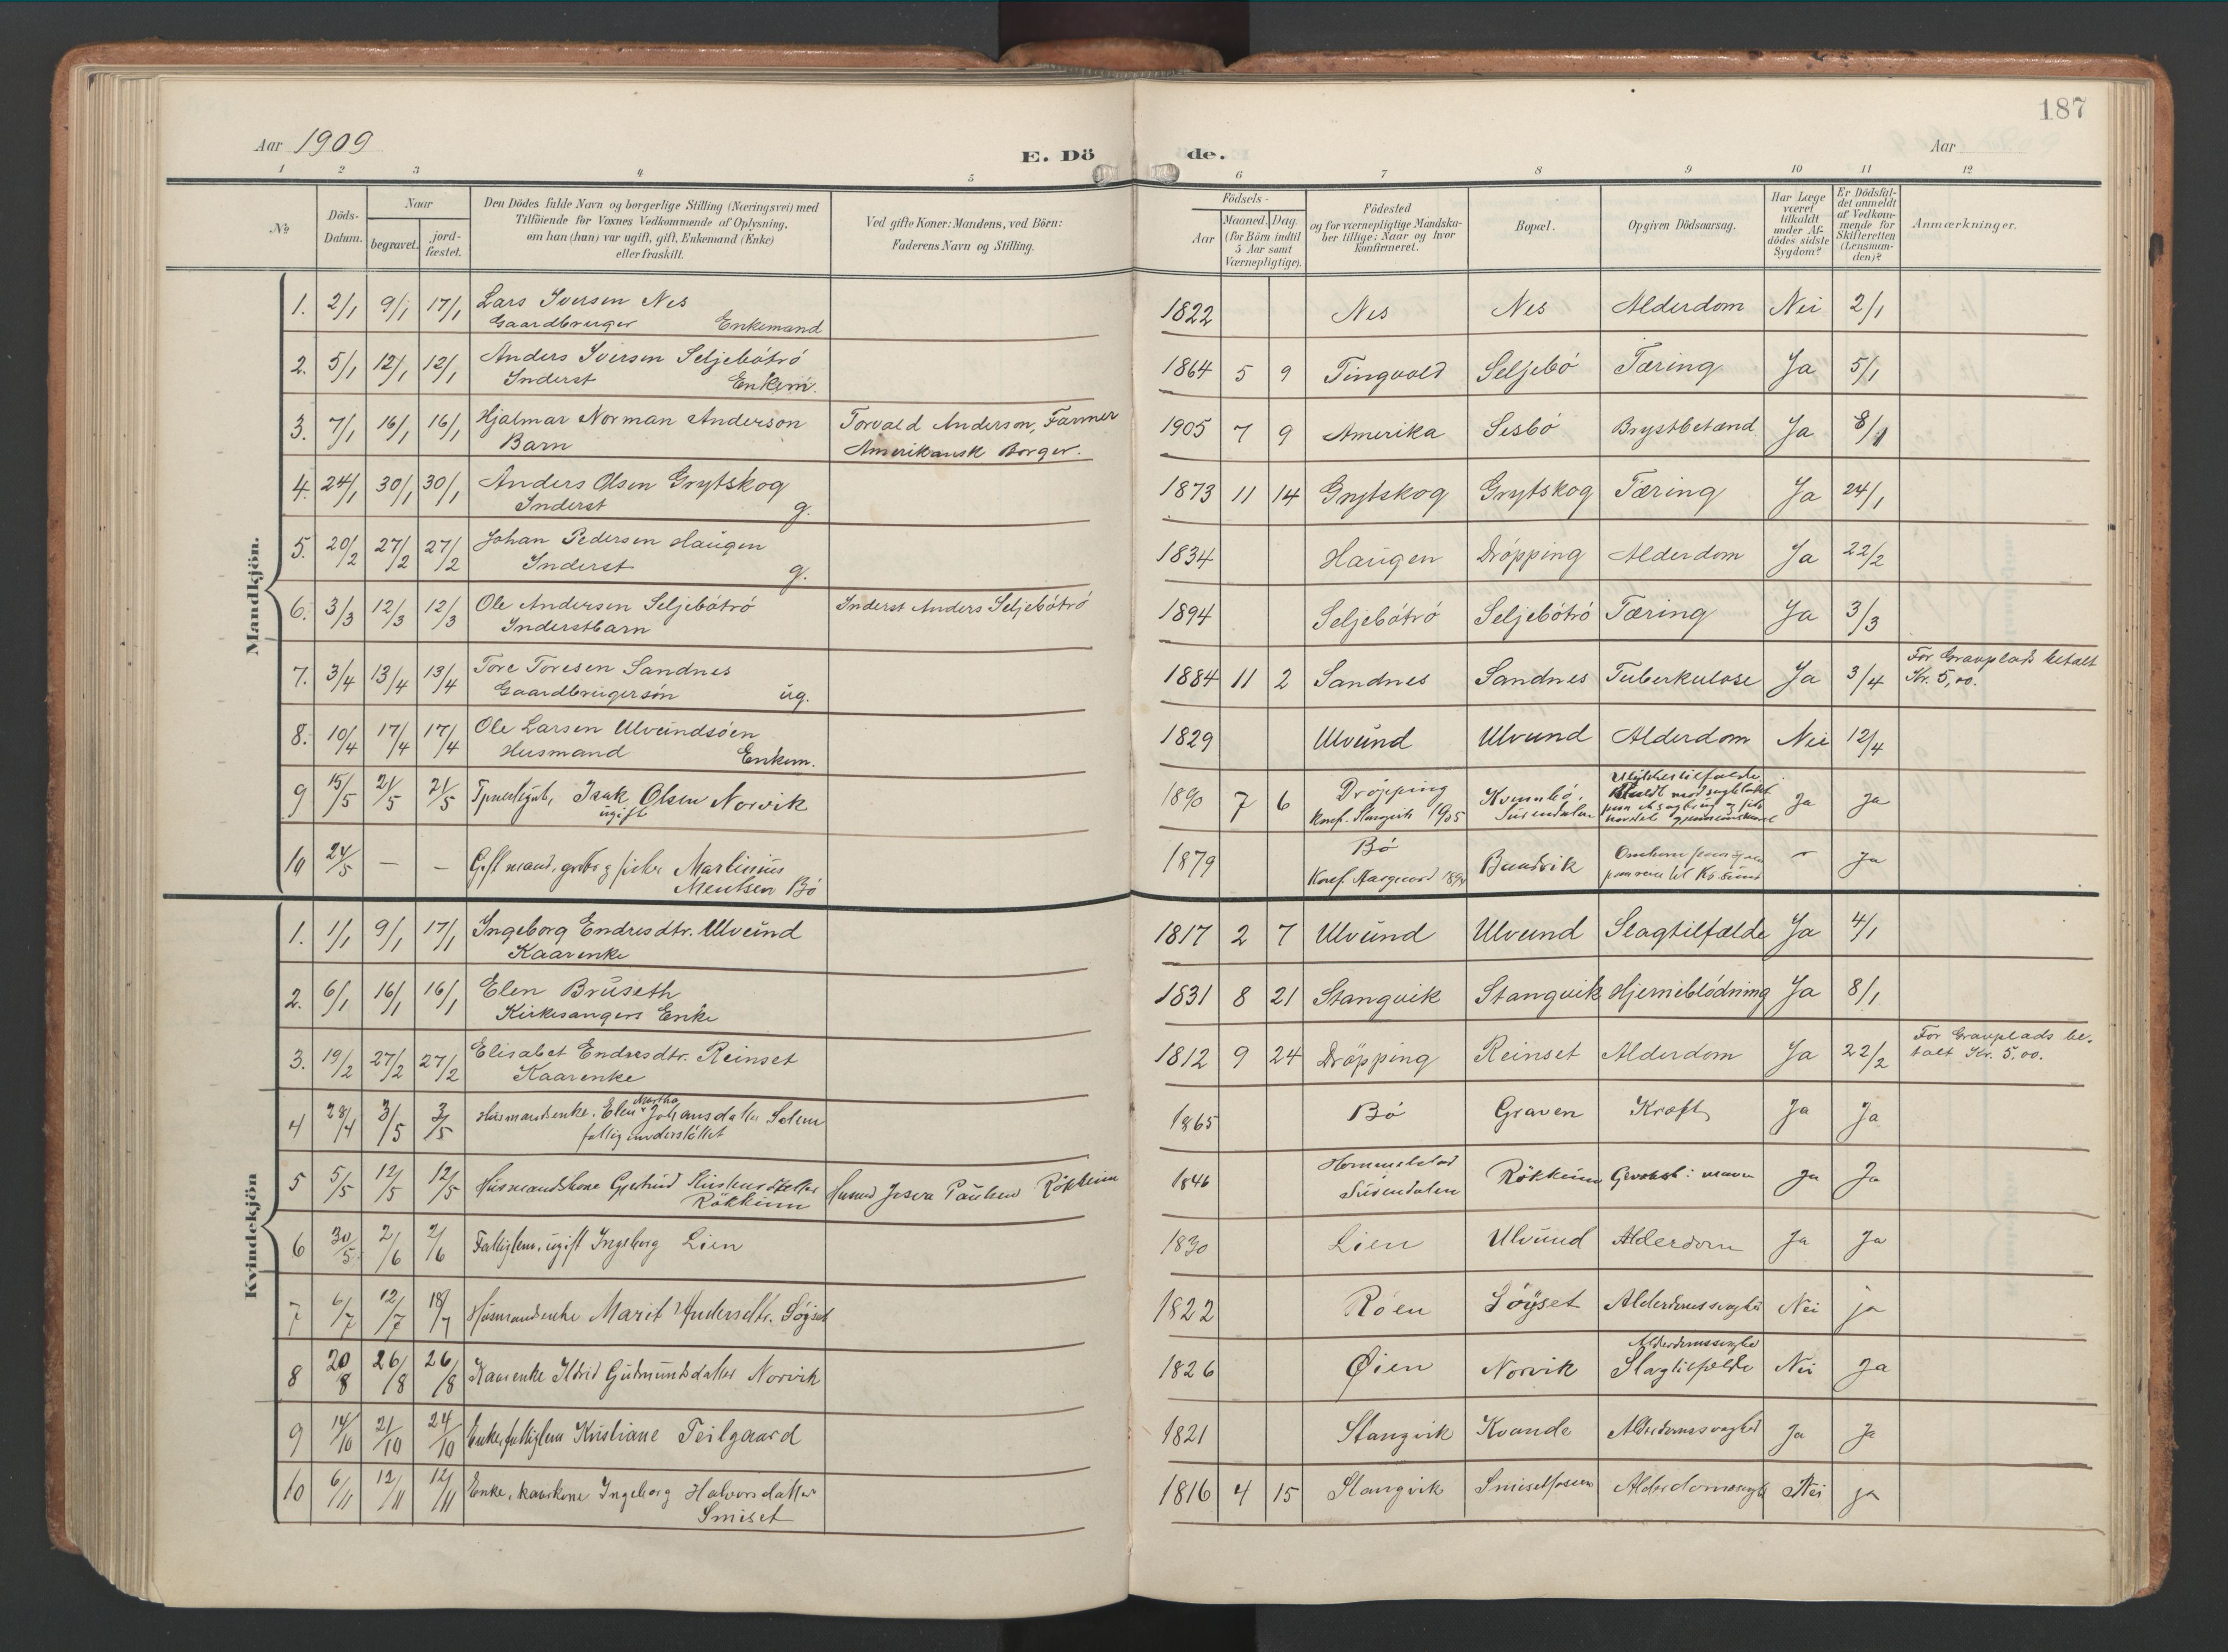 187
Aar 1909
E. Dö de.
Aar
1 2 3 4 5 6 7 8 9 10 11 12
No
Döds-
Datum.
Naar
begravet.
jord-
fæstet.
Den Dödes fulde Navn og borgerlige Stilling (Næringsvei) med
Tilföiende for Voxnes Vedkommende af Oplysning,
om han (hun) var ugift, gift, Enkemand (Enke)
eller fraskilt.
Ved gifte Koner: Mandens, ved Börn:
Faderens Navn og Stilling.
Födsels-
Aar
Maaned. Dag.
(for Börn indtil
5 Aar samt
Værnepligtige).
Födested
og for værnepligtige Mandska-
ber tillige: Naar og hvor
konfirmeret.
Bopæl.
Opgiven Dödsaarsag.
Har Læge
været
tilkaldt
under Af-
dödes sidste
Sygdom?
Er Dödsfal-
det anmeldt
af Vedkom-
mende for
Skifteretten
(Lensman-
den)?
Anmærkninger.
Mandkjön.
1. 2/1 9/1 17/1 Lars Iversen Nes 1822 Nes Nes Alderdom Nei 2/1
Gaardbruger Enkemand
2. 5/1 12/1 12/1 Anders Iversen Seljebötrö 1864 5 9 Tingvold Seljebö Tæring Ja 5/1
Inderst Enkem.
3. 7/1 16/1 16/1 Hjalmar Norman Anderson Torvald Anderson, Farmer 1905 7 9 Amerika Sesbö Brystbetænd. Ja 8/1
Barn Amerikansk Borger.
4. 24/1 30/1 30/1 Anders Olsen Grytskog 1873 11 14 Grytskog Grytskog Tæring Ja 24/1
Inderst g.
5. 20/2 27/2 27/2 Johan Pedersen Haugen 1834 Haugen Dröpping Alderdom Ja 22/2
Inderst g.
6. 3/3 12/3 12/3 Ole Andersen Seljebötrö Inderst Anders Seljebötrö 1894 Seljebötrö Seljebötrö Tæring Ja 3/3
Inderstbarn
7. 3/4 13/4 13/4 Tore Toresen Sandnes 1884 11 2 Sandnes Sandnes Tuberkulose Ja 3/4 For Gravplads betalt
Gaardbrugersön ug. Kr. 5,00.
8. 10/4 17/4 17/4 Ole Larsen Ulvundsöen 1829 Ulvund Ulvund Alderdom Nei 12/4
Husmand Enkem.
9 15/5 21/5 21/5 Isak Olsen Norvik 1890 7 6 Dröpping Kvennbö, Ulykkestilfælde. Ja Ja
ugift Konf. Stangvik 1905 Surendalen
10 24/5 — — Gift mand, Martinius 1879 Bö Bundvik — Ja
Bö Konf.
Kvindekjön
1. 1/1 9/1 17/1 Ingeborg Endresdtr. Ulvund 1817 2 7 Ulvund Ulvund Slagtilfælde Ja 4/1
Kaarenke
2. 6/1 16/1 16/1 Elen Bruseth 1831 8 21 Stangvik Stangvik Hjerneblödning Ja 8/1
Kirkesangers Enke
3. 19/2 27/2 27/2 Elisabet Endresdtr. Reinset 1812 9 24 Dröpping Reinset Alderdom Ja 22/2 For Gravplads be-
Kaarenke talt Kr. 5,00.
4 28/4 3/5 3/5 Husmandsenke. Elen Martha Johansdatter Solem 1865 Bö Graven Kræft Ja Ja
fattigunderstöttet
5 5/5 12/5 12/5 Husmandskone Gjertrud RöKkum 1846 Surendalen Rökkum Ja Ja
6 30/5 2/6 2/6 Fattiglem, ugift Ingeborg Lien 1830 Lien Ulvund Alderdom Ja Ja
7 6/7 12/7 18/7 Husmandsenke Marit Andersdtr. Söyset 1822 Röen Söyset Alderdomssvaghed Nei ja
8 20/8 26/8 26/8 Kaarenke Ildrid Gudmundsdatter Norvik 1826 Øien Norvik Alderdomssvaghed Slagtilfælde Nei Ja
9 14/10 21/10 24/10 Enke, fattiglem Kristiane Teilgaard 1821 Stangvik Kvande Alderdomssvaghed Ja Ja
10 6/11 12/11 12/11 Enke, kaarkone Ingeborg Halvorsdatter 1816 4 15 Stangvik Nei ja
Smiset